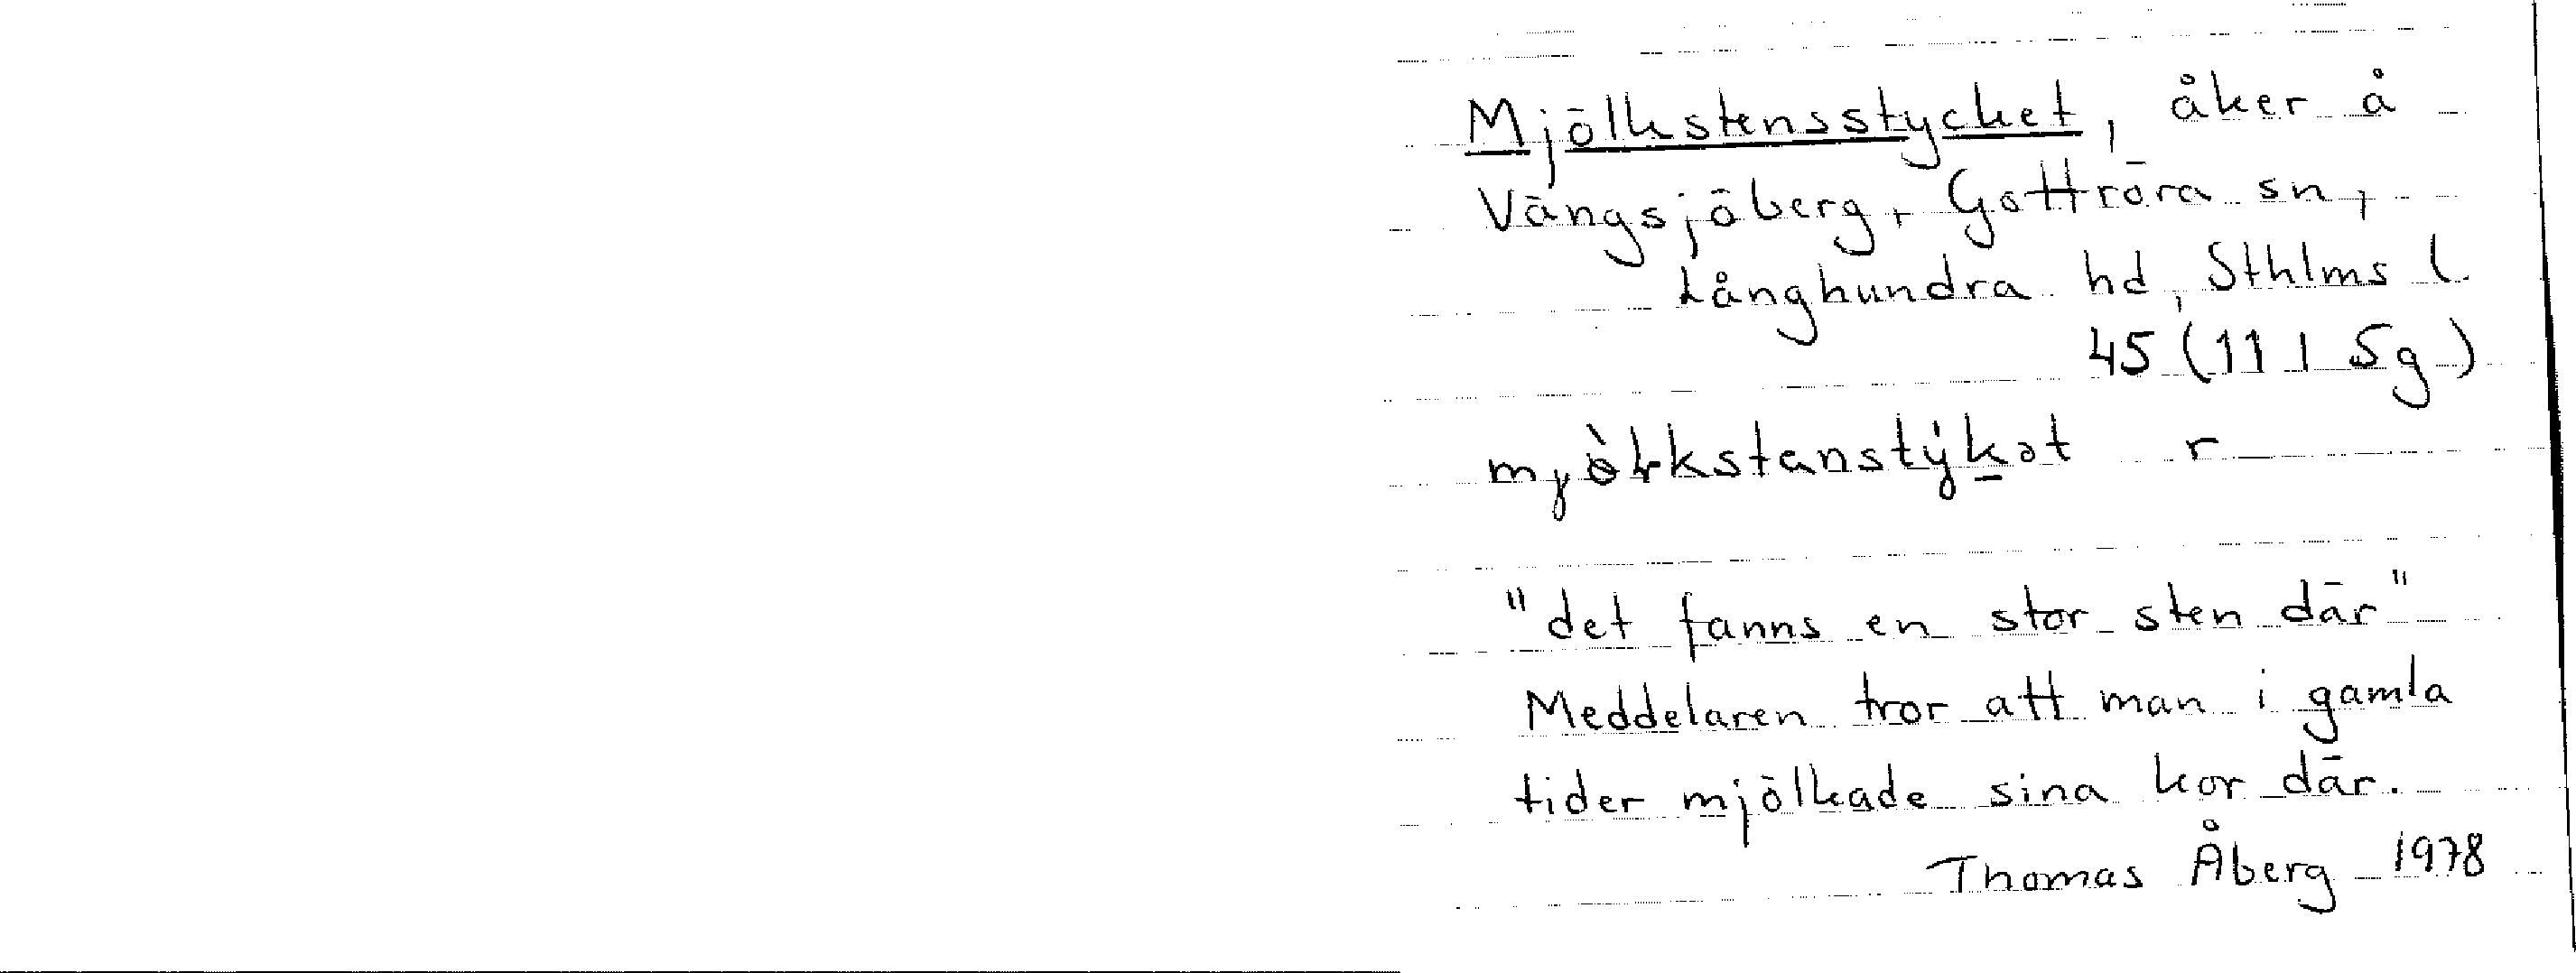 Mjölkstensstycket, åker å
Vängsjöberg, Gottröra sn,
Långhundra hd, Sthlms l.
45 (11 I 5g)
r
"det fanns en stor sten där"
Meddelaren tror att man i gamla
tider mjölkade sina kor där.
Thomas Åberg 1978